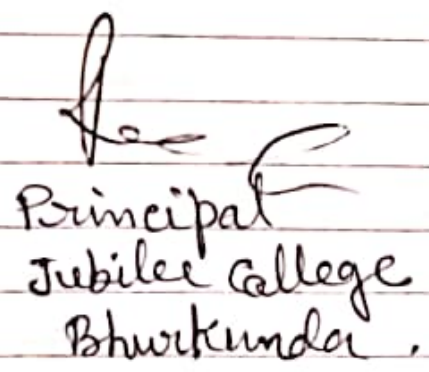 Principal
Jubilee College
Bhurkunda.